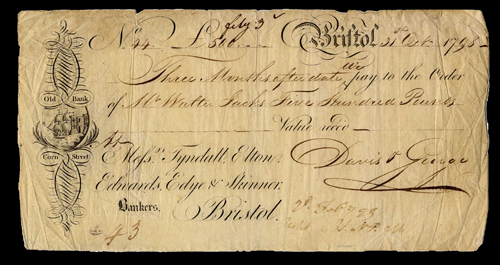 Feby 3
No. 44 £500 Bristol 31st Octr 1798
Three Months after date pay to the Order
of Mr Walter Jacks Five Hundred Pounds
Value recd
Old Bank
Corn Street
Messrs Tyndall, Elton,
Edwards, Edye & Skinner
Bankers, Bristol.
Davis & George
43